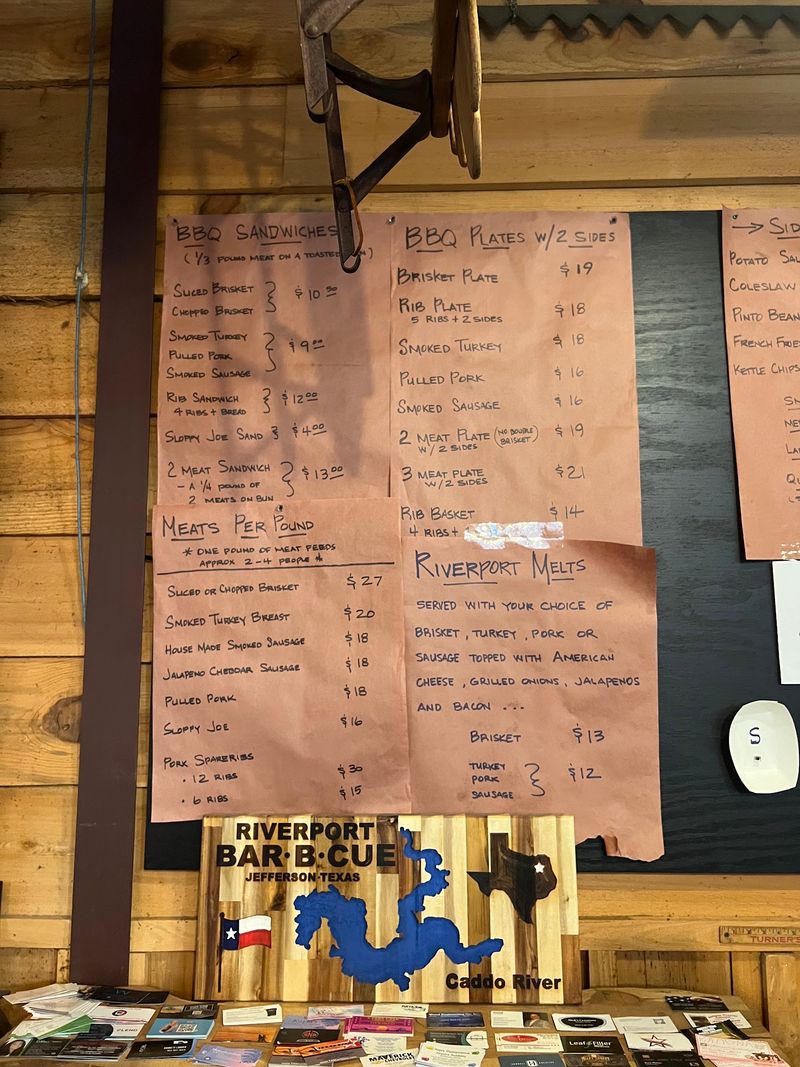 BBQ SANDWICHES
(1/3 POUND MEAT ON A TOASTED
SLICED BRISKET
CHOPPED BRISKET
$10.50
SMOKED TURKEY
PULLED PORK
SMOKED SAUSAGE
$9.00
RIB SANDWICH
4 RIBS + BREAD
$12.00
SLOPPY JOE SAND $4.00
2 MEAT SANDWICH
- A 1/4 POUND OF
2 MEATS ON BUN
$13.00
BBQ PLATES W/2 SIDES
BRISKET PLATE $19
RIB PLATE $18
5 RIBS + 2 SIDES
SMOKED TURKEY $18
PULLED PORK $16
SMOKED SAUSAGE $16
2 MEAT PLATE (NO DOUBLE BRISKET) $19
W/2 SIDES
3 MEAT PLATE $21
W/2 SIDES
RIB BASKET $14
4 RIBS +
MEATS PER POUND
* ONE POUND OF MEAT FEEDS
APPROX 2-4 PEOPLE *
SLICED OR CHOPPED BRISKET $27
SMOKED TURKEY BREAST $20
HOUSE MADE SMOKED SAUSAGE $18
JALAPENO CHEDDAR SAUSAGE $18
PULLED PORK $18
SLOPPY JOE $16
PORK SPARERIBS
• 12 RIBS $30
• 6 RIBS $15
RIVERPORT MELTS
SERVED WITH YOUR CHOICE OF
BRISKET, TURKEY, PORK OR
SAUSAGE TOPPED WITH AMERICAN
CHEESE, GRILLED ONIONS, JALAPENOS
AND BACON ...
BRISKET $13
TURKEY
PORK
SAUSAGE
$12
→ SID
POTATO SAL
COLESLAW
PINTO BEAN
FRENCH FRIE
KETTLE CHIPS
S
RIVERPORT
BAR·B·CUE
JEFFERSON·TEXAS
Caddo River
TURNER'S
MAVERICK